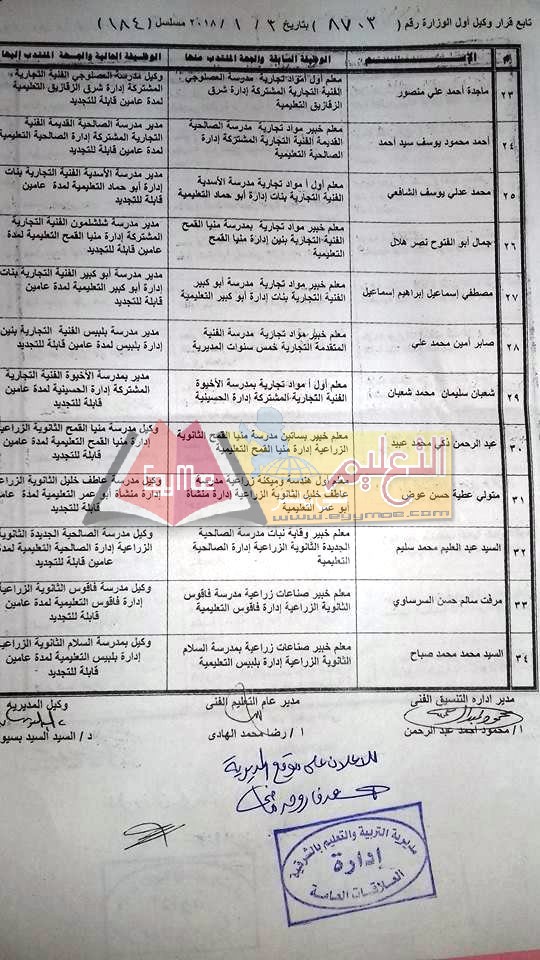 تابع قرار وكيل أول الوزارة رقم ( ٨٧٠٣ ) بتاريخ ٣ / ١ / ٢٠١٨ مسلسل ( ١٨٤ )
م الإســـــم الوظيفة السابقة والجهة المنتدب منها الوظيفة الحالية والجهة المنتدب إليها
٢٣ ماجدة أحمد علي منصور
معلم أول أ مواد تجارية مدرسة العصلوجي
الفنية التجارية المشتركة إدارة شرق
الزقازيق التعليمية
وكيل مدرسة العصلوجي الفنية التجارية
المشتركة إدارة شرق الزقازيق التعليمية
لمدة عامين قابلة للتجديد
٢٤ أحمد محمود يوسف سيد أحمد
معلم خبير مواد تجارية مدرسة الصالحية
القديمة الفنية التجارية المشتركة إدارة
الصالحية التعليمية
مدير مدرسة الصالحية القديمة الفنية
التجارية المشتركة إدارة الصالحية التعليمية
لمدة عامين قابلة للتجديد
٢٥ محمد عدلي يوسف الشافعي
معلم أول أ مواد تجارية مدرسة الأسدية
الفنية التجارية بنات إدارة أبو حماد التعليمية
مدير مدرسة الأسدية الفنية التجارية بنات
إدارة أبو حماد التعليمية لمدة عامين
قابلة للتجديد
٢٦ جمال أبو الفتوح نصر هلال
معلم خبير مواد تجارية بمدرسة منيا القمح
الفنية التجارية بنين إدارة منيا القمح
التعليمية
مدير مدرسة شلشلمون الفنية التجارية
المشتركة إدارة منيا القمح التعليمية لمدة
عامين قابلة للتجديد
٢٧ مصطفي إسماعيل إبراهيم إسماعيل
معلم خبير مواد تجارية مدرسة أبو كبير
الفنية التجارية بنات إدارة أبو كبير التعليمية
مدير مدرسة أبو كبير الفنية التجارية بنات
إدارة أبو كبير التعليمية لمدة عامين
قابلة للتجديد
٢٨ صابر أمين محمد علي
معلم خبير مواد تجارية مدرسة الفنية
المتقدمة التجارية خمس سنوات المديرية
مدير مدرسة بلبيس الفنية التجارية بنين
إدارة بلبيس لمدة عامين قابلة للتجديد
٢٩ شعبان سليمان محمد شعبان
معلم أول أ مواد تجارية بمدرسة الأخيوة
الفنية التجارية المشتركة إدارة الحسينية
مدير بمدرسة الأخيوة الفنية التجارية
المشتركة إدارة الحسينية لمدة عامين
قابلة للتجديد
٣٠ عبد الرحمن ذكي محمد عبيد
معلم خبير بساتين مدرسة منيا القمح الثانوية
الزراعية إدارة منيا القمح التعليمية
وكيل مدرسة منيا القمح الثانوية الزراعية
إدارة منيا القمح التعليمية لمدة عامين
قابلة للتجديد
٣١ متولي عطية حسن عوض
معلم أول هندسة وميكنة زراعية مدرسة
عاطف خليل الثانوية الزراعية إدارة منشأة
أبو عمر التعليمية
وكيل مدرسة عاطف خليل الثانوية الزراعية
إدارة منشأة أبو عمر التعليمية لمدة عامين
قابلة للتجديد
٣٢ السيد عبد العليم محمد سليم
معلم خبير وقاية نبات مدرسة الصالحية
الجديدة الثانوية الزراعية إدارة الصالحية
التعليمية
وكيل مدرسة الصالحية الجديدة الثانوية
الزراعية إدارة الصالحية التعليمية لمدة
عامين قابلة للتجديد
٣٣ مرفت سالم حسن السرساوي
معلم خبير صناعات زراعية مدرسة فاقوس
الثانوية الزراعية إدارة فاقوس التعليمية
وكيل مدرسة فاقوس الثانوية الزراعية
إدارة فاقوس التعليمية لمدة عامين
قابلة للتجديد
٣٤ السيد محمد محمد صباح
معلم خبير صناعات زراعية بمدرسة السلام
الثانوية الزراعية إدارة بلبيس التعليمية
وكيل بمدرسة السلام الثانوية الزراعية
إدارة بلبيس التعليمية لمدة عامين
قابلة للتجديد
التعليم
مصر
EgyMoe
www.egymoe.com
مدير اداره التنسيق الفنى مدير عام التعليم الفنى وكيل المديريه
ا / محمود احمد عبد الرحمن ا / رضا محمد الهادى د / السيد السيد بسيو
للاعلان على موقع المديرية
مديرية التربية والتعليم بالشرقية
إدارة
العلاقات العامة